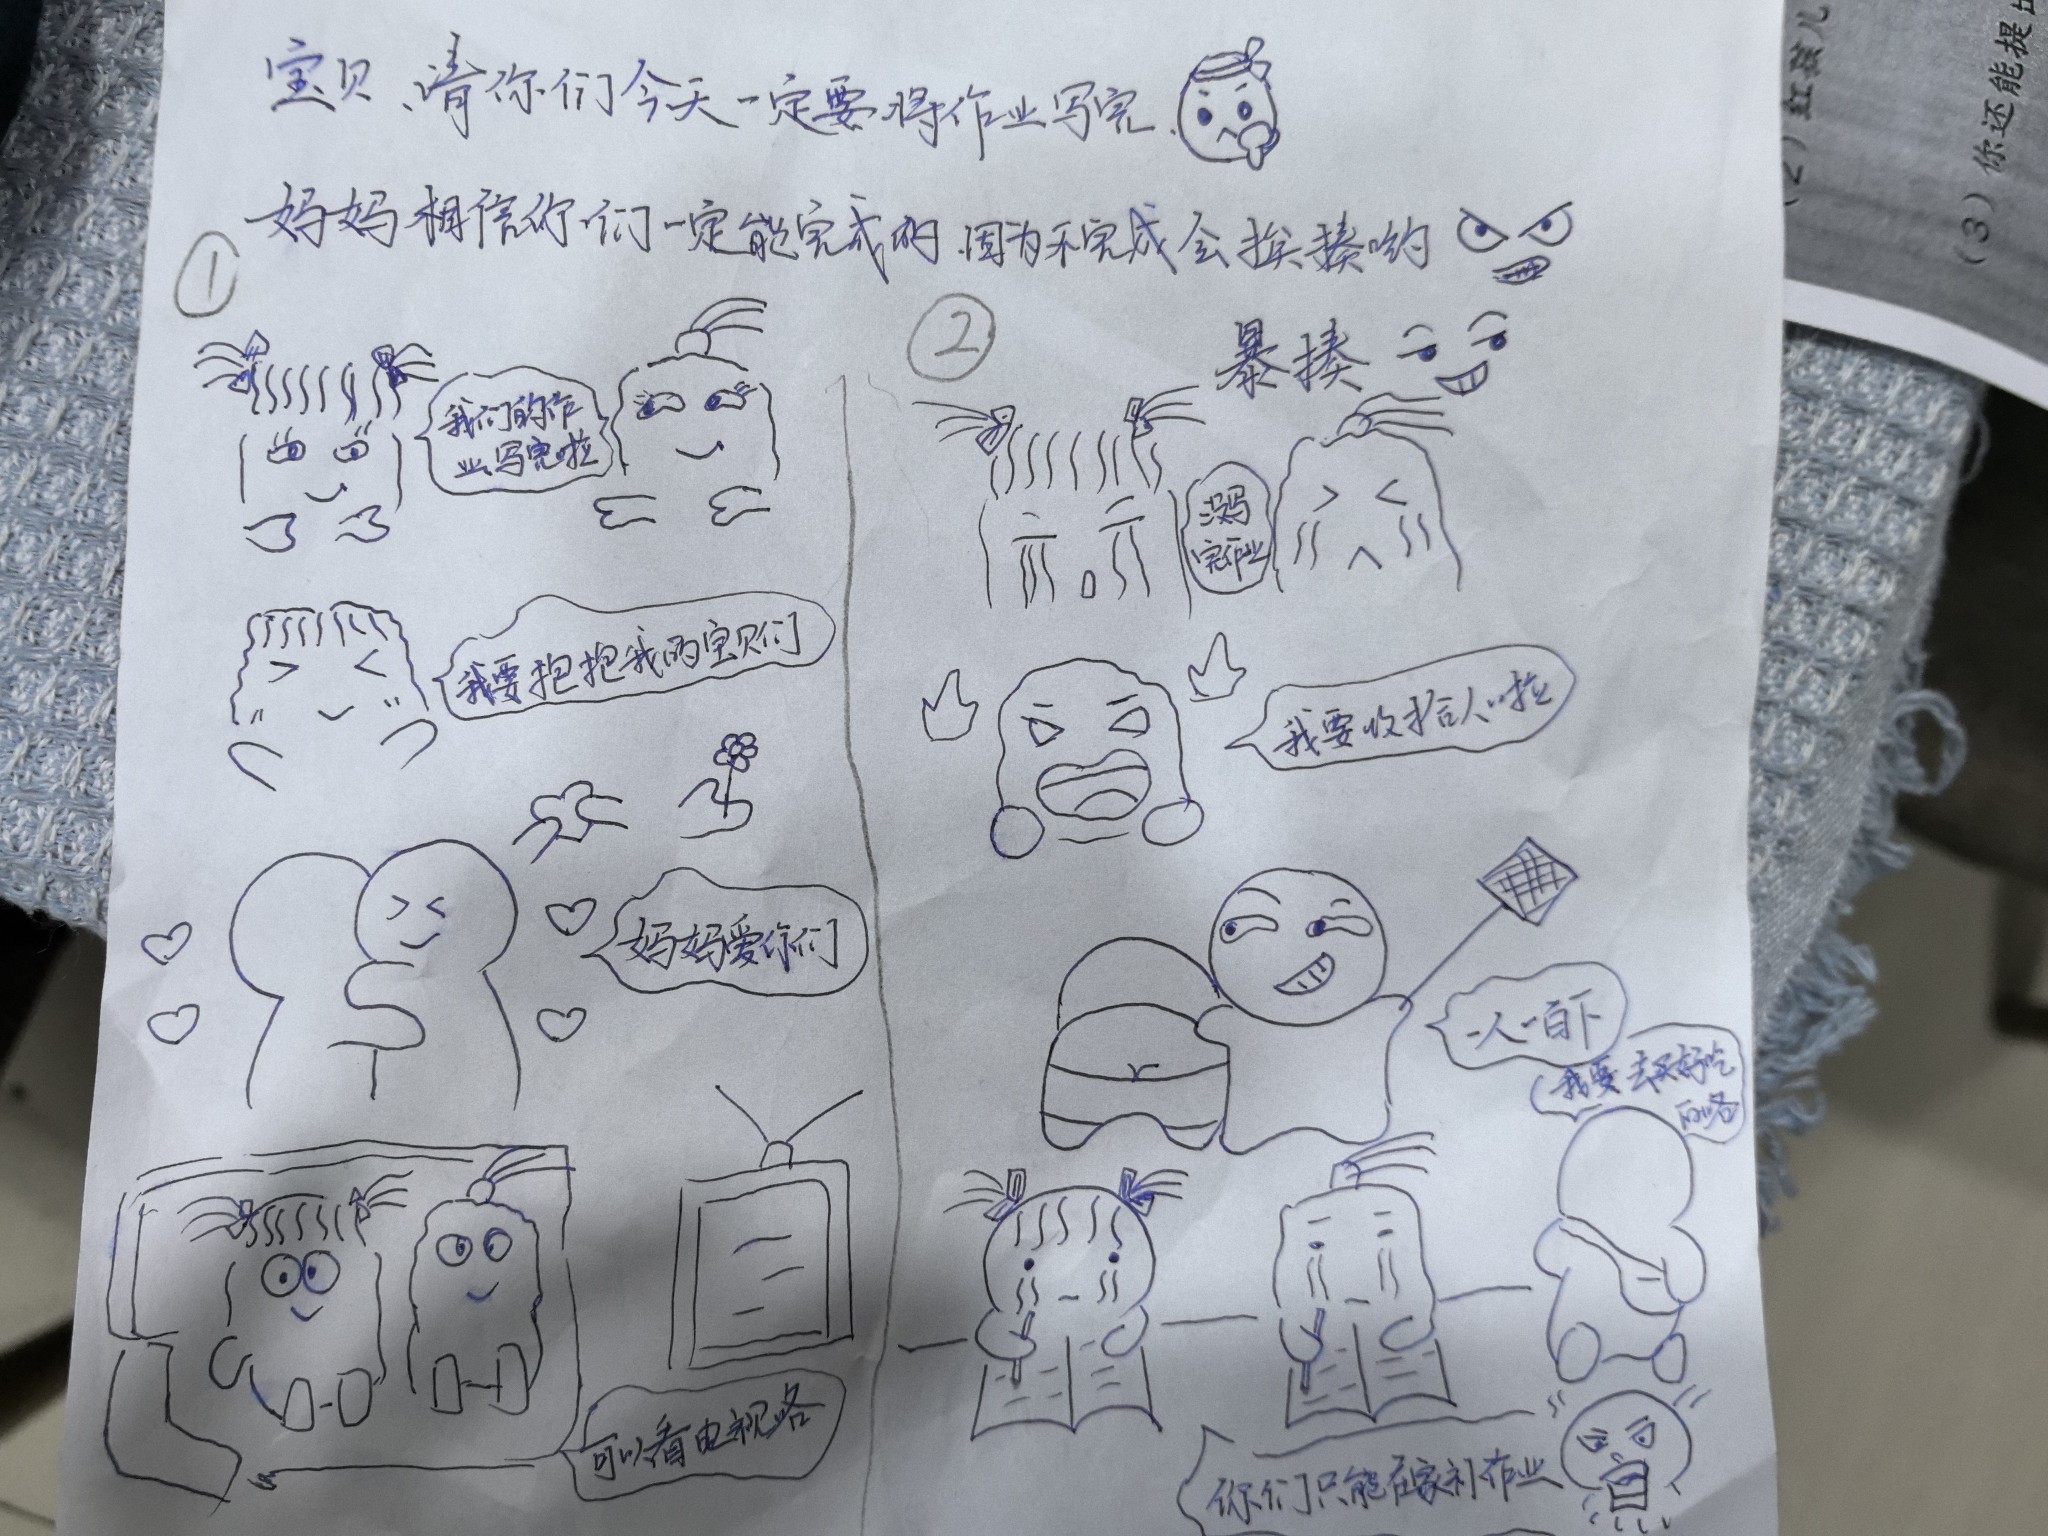 宝贝、请你们今天一定要将作业写完.
妈妈相信你们一定能完成的.因为不完成会挨揍哟
①
我们的作
业写完啦
我要抱抱我的宝贝们
妈妈爱你们
可以看电视咯
②
暴揍
没妈
完作业
我要收拾人啦
一人一百下
我要去买好吃
的咯
你们只能在家补作业
(2) 红孩儿
(3) 你还能提出